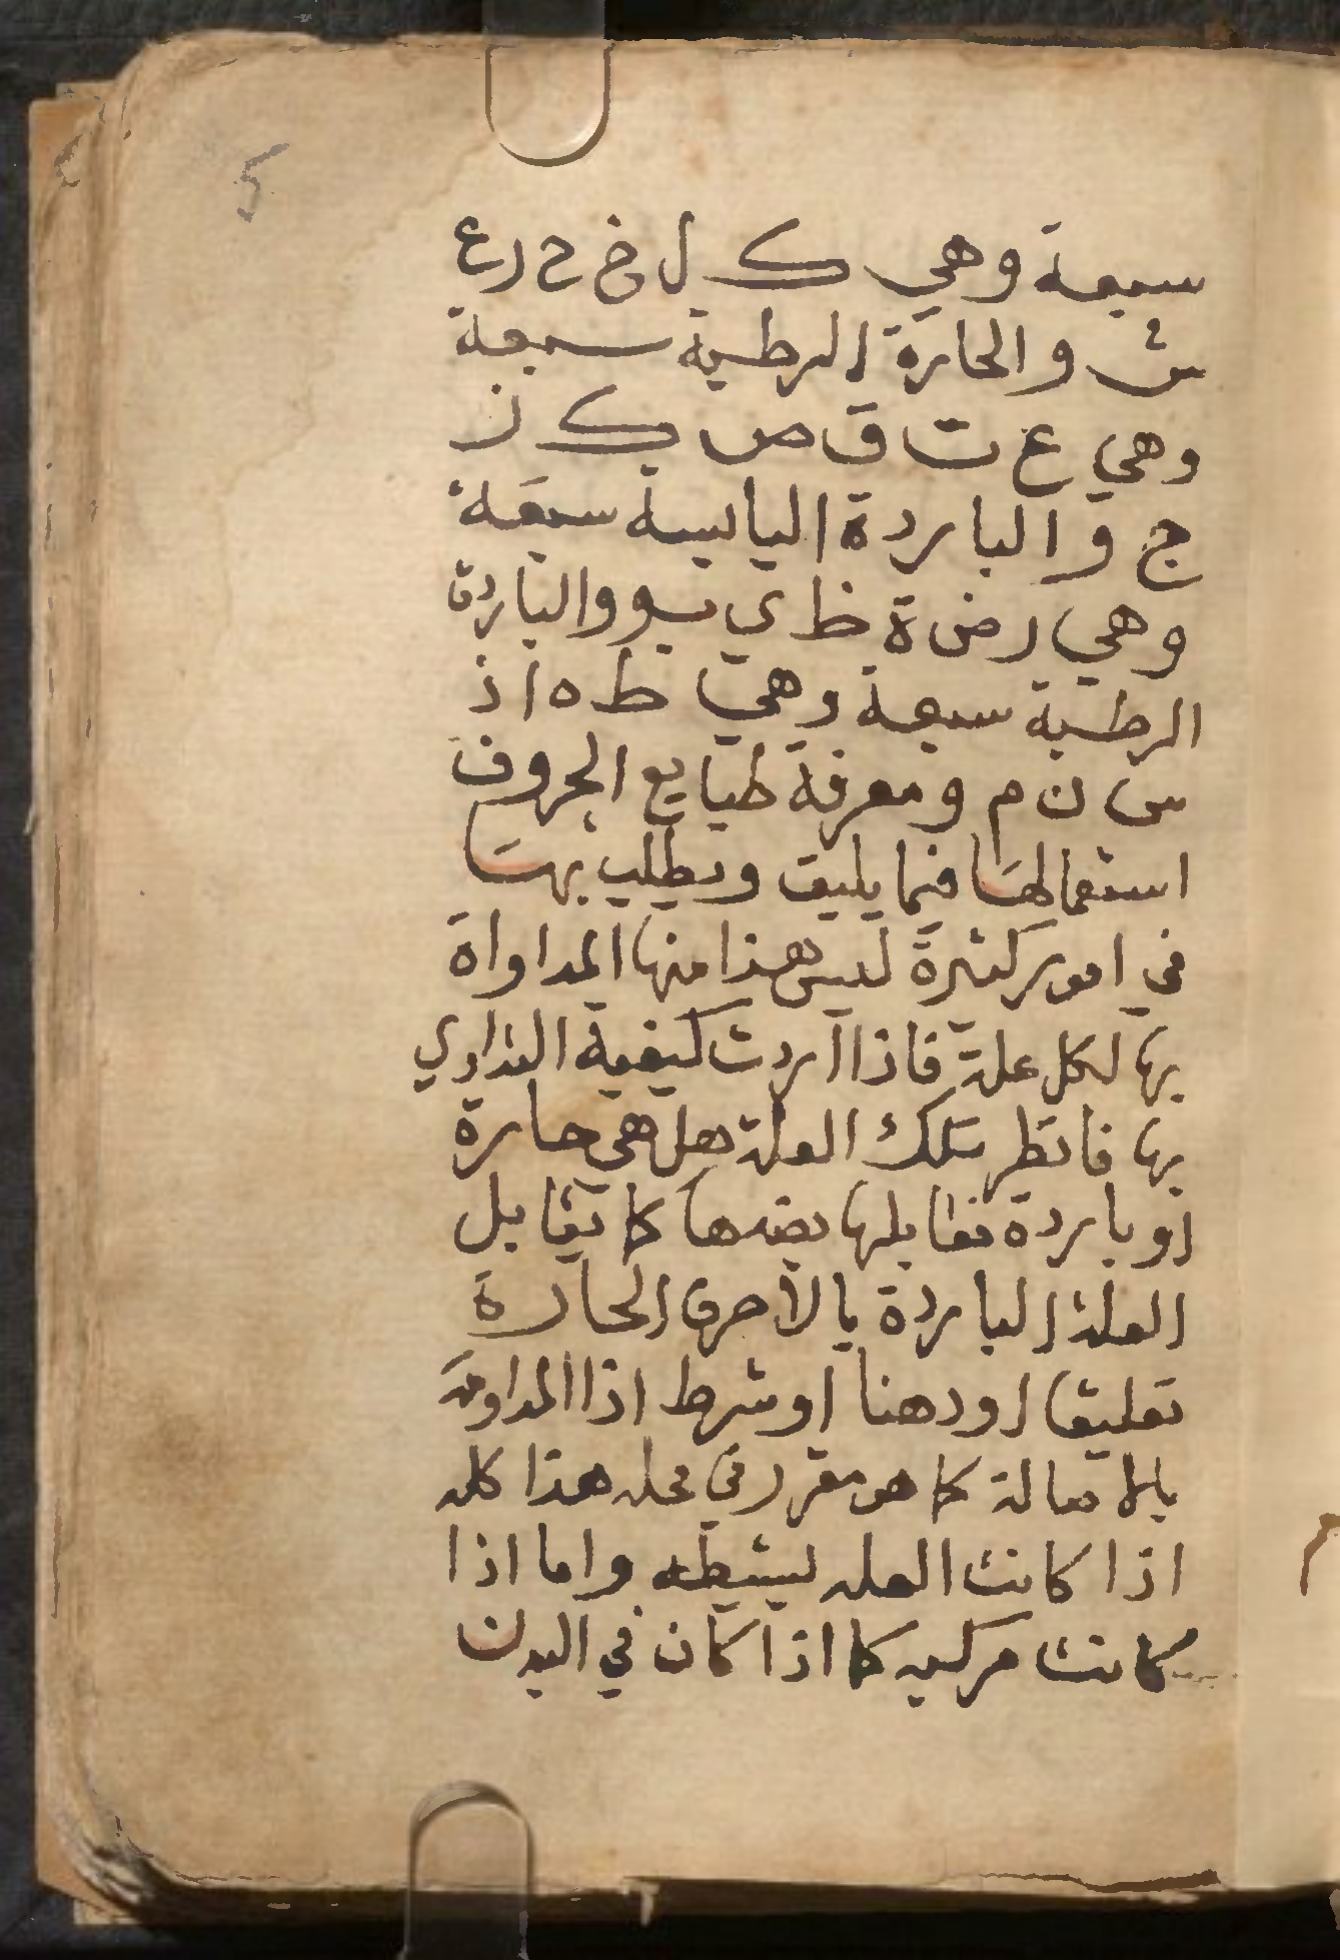 5
سبعة وهي ك ل خ ح ر ع
ش والحارة الرطبة سبعة
وهي غ ت ق ص ك ز
ج والباردة اليابسة سبعة
وهي ر ض ة ظ ي ب و والباردة
الرطبة سبعة وهي ط ه ا ذ
س ن م ومعرفة طبايع الحروف
استعمالها فيما يليق ويطلب بها
في امور كثيرة ليس هذا منها المداواة
بها لكل علة فاذا اردت كيفية التداوي
بها فانظر بتلك العلة هل هي حارة
او باردة فقابلها بضدها كما تقابل
العلة الباردة بالاحرف الحارة
تعليقا او دهنا او شرط اذا المداومة
كما هو مقرر في محله هذا كله
اذا كانت العله بسيطه واما اذا
كانت مركبه كما اذا كان في البدن